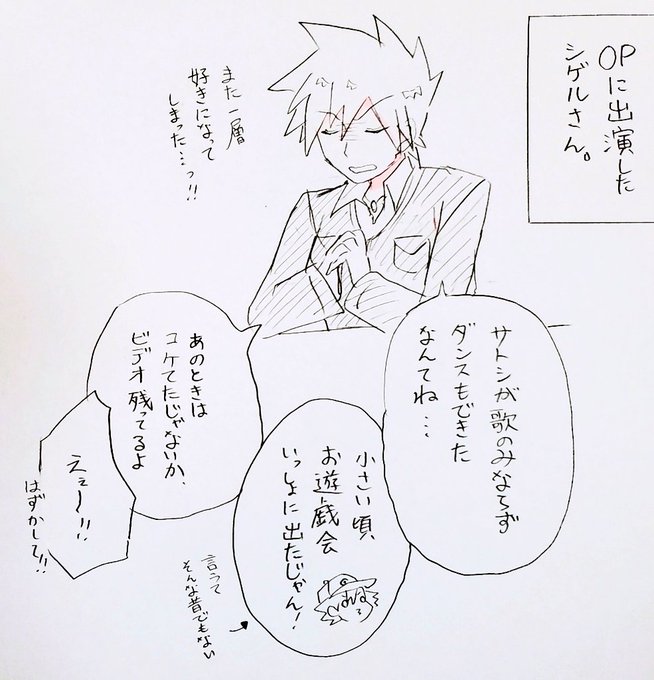 OPに出演した
シゲルさん。
また一層
好きになって
しまった…っ!!
サトシが歌のみならず
ダンスもできた
なんてね…
小さい頃、
お遊戯会
いっしょに出たじゃん!
言うて
そんな昔でもない
あのときは
コケてたじゃないか、
ビデオ残ってるよ
えぇ〜!!!
はずかして!!